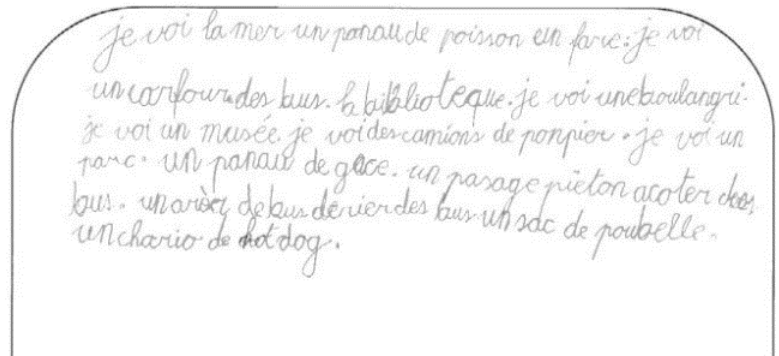 je voi la mer un panau de poisson un fare. je voi
un carfour. des bus. la biblioteque. je voi une boulangri.
je voi un musée. je voi des camions de ponpier. je voi un
parc. un panau de glace. un pasage piéton acoter des
bus. un arèt de bus dérier des bus un sac de poubelle.
un chario de hot dog.